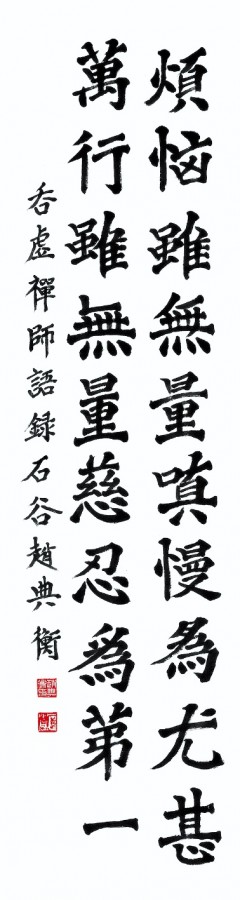 煩惱雖無量嗔慢為尤甚
萬行雖無量慈忍爲第一
呑虛禪師語錄石谷趙典衡